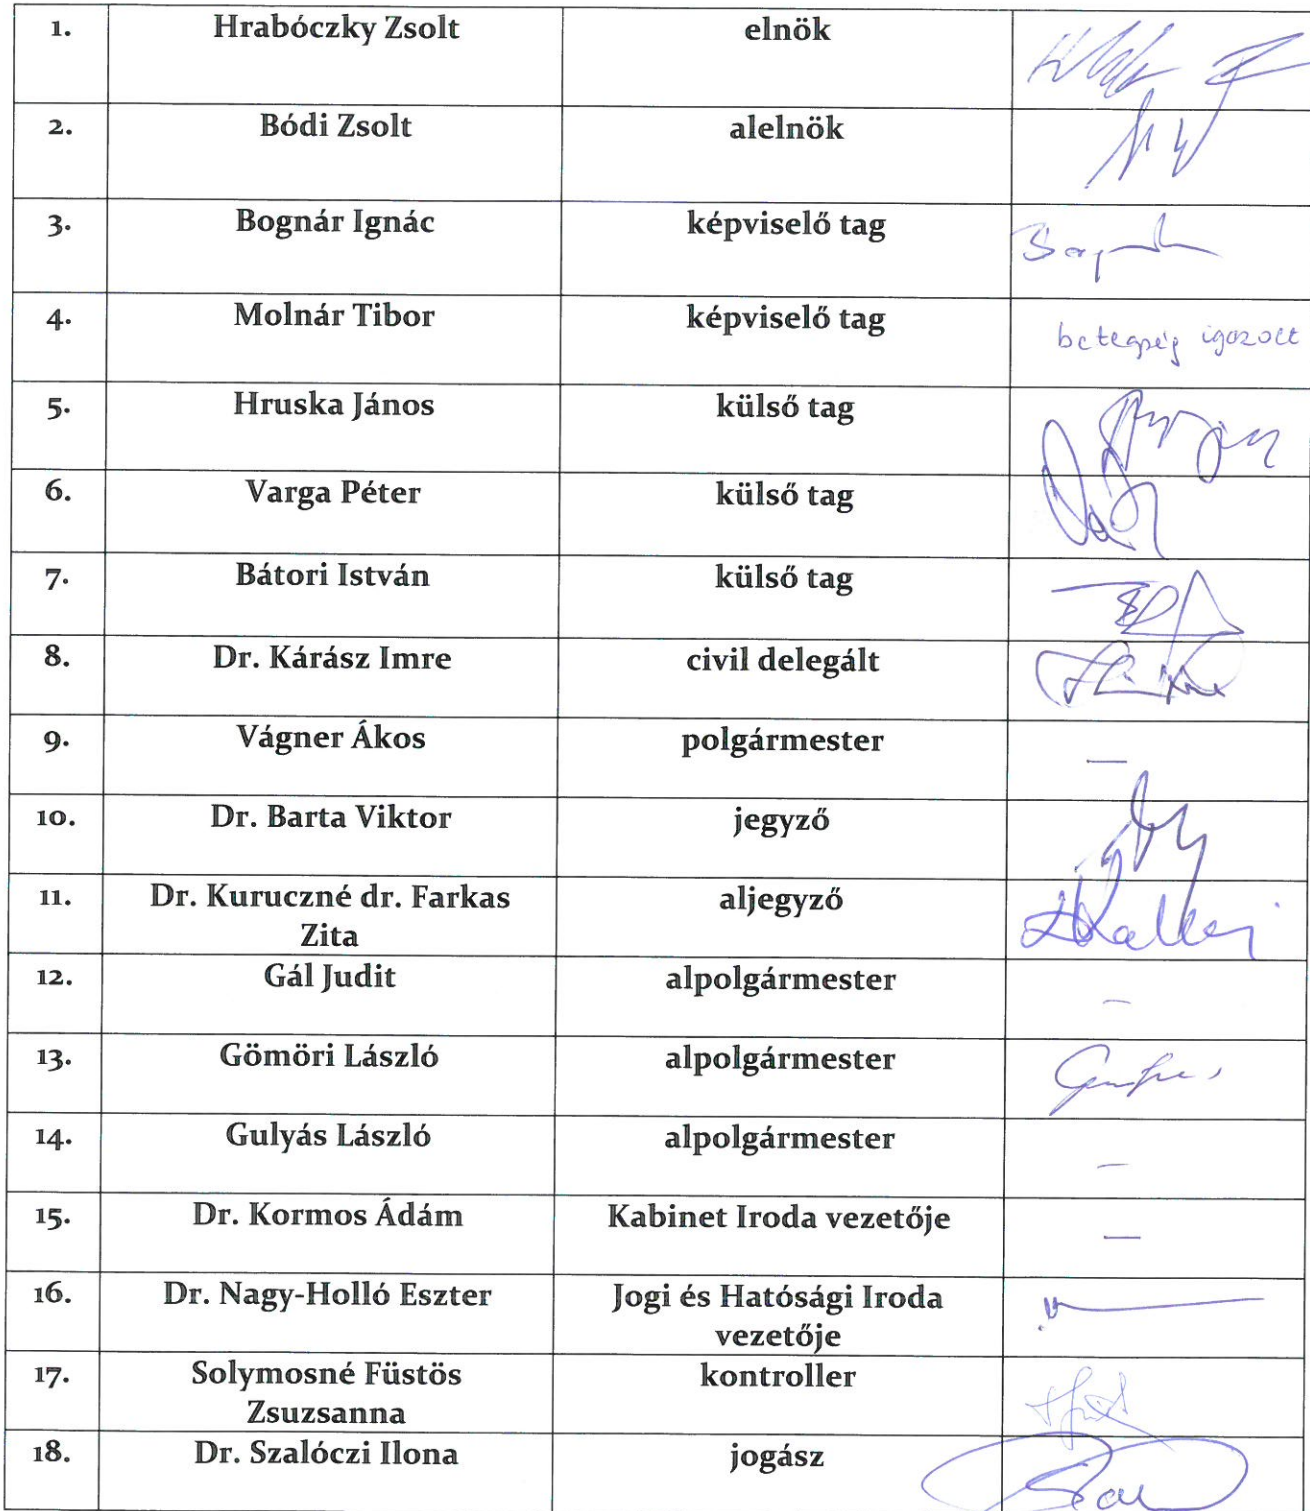 1. Hrabóczky Zsolt elnök
2. Bódi Zsolt alelnök
3. Bognár Ignác képviselő tag
4. Molnár Tibor képviselő tag betegség igazolt
5. Hruska János külső tag
6. Varga Péter külső tag
7. Bátori István külső tag
8. Dr. Kárász Imre civil delegált
9. Vágner Ákos polgármester —
10. Dr. Barta Viktor jegyző
11. Dr. Kuruczné dr. Farkas aljegyző
Zita
12. Gál Judit alpolgármester —
13. Gömöri László alpolgármester
14. Gulyás László alpolgármester —
15. Dr. Kormos Ádám Kabinet Iroda vezetője —
16. Dr. Nagy-Holló Eszter Jogi és Hatósági Iroda
vezetője
17. Solymosné Füstös kontroller
Zsuzsanna
18. Dr. Szalóczi Ilona jogász